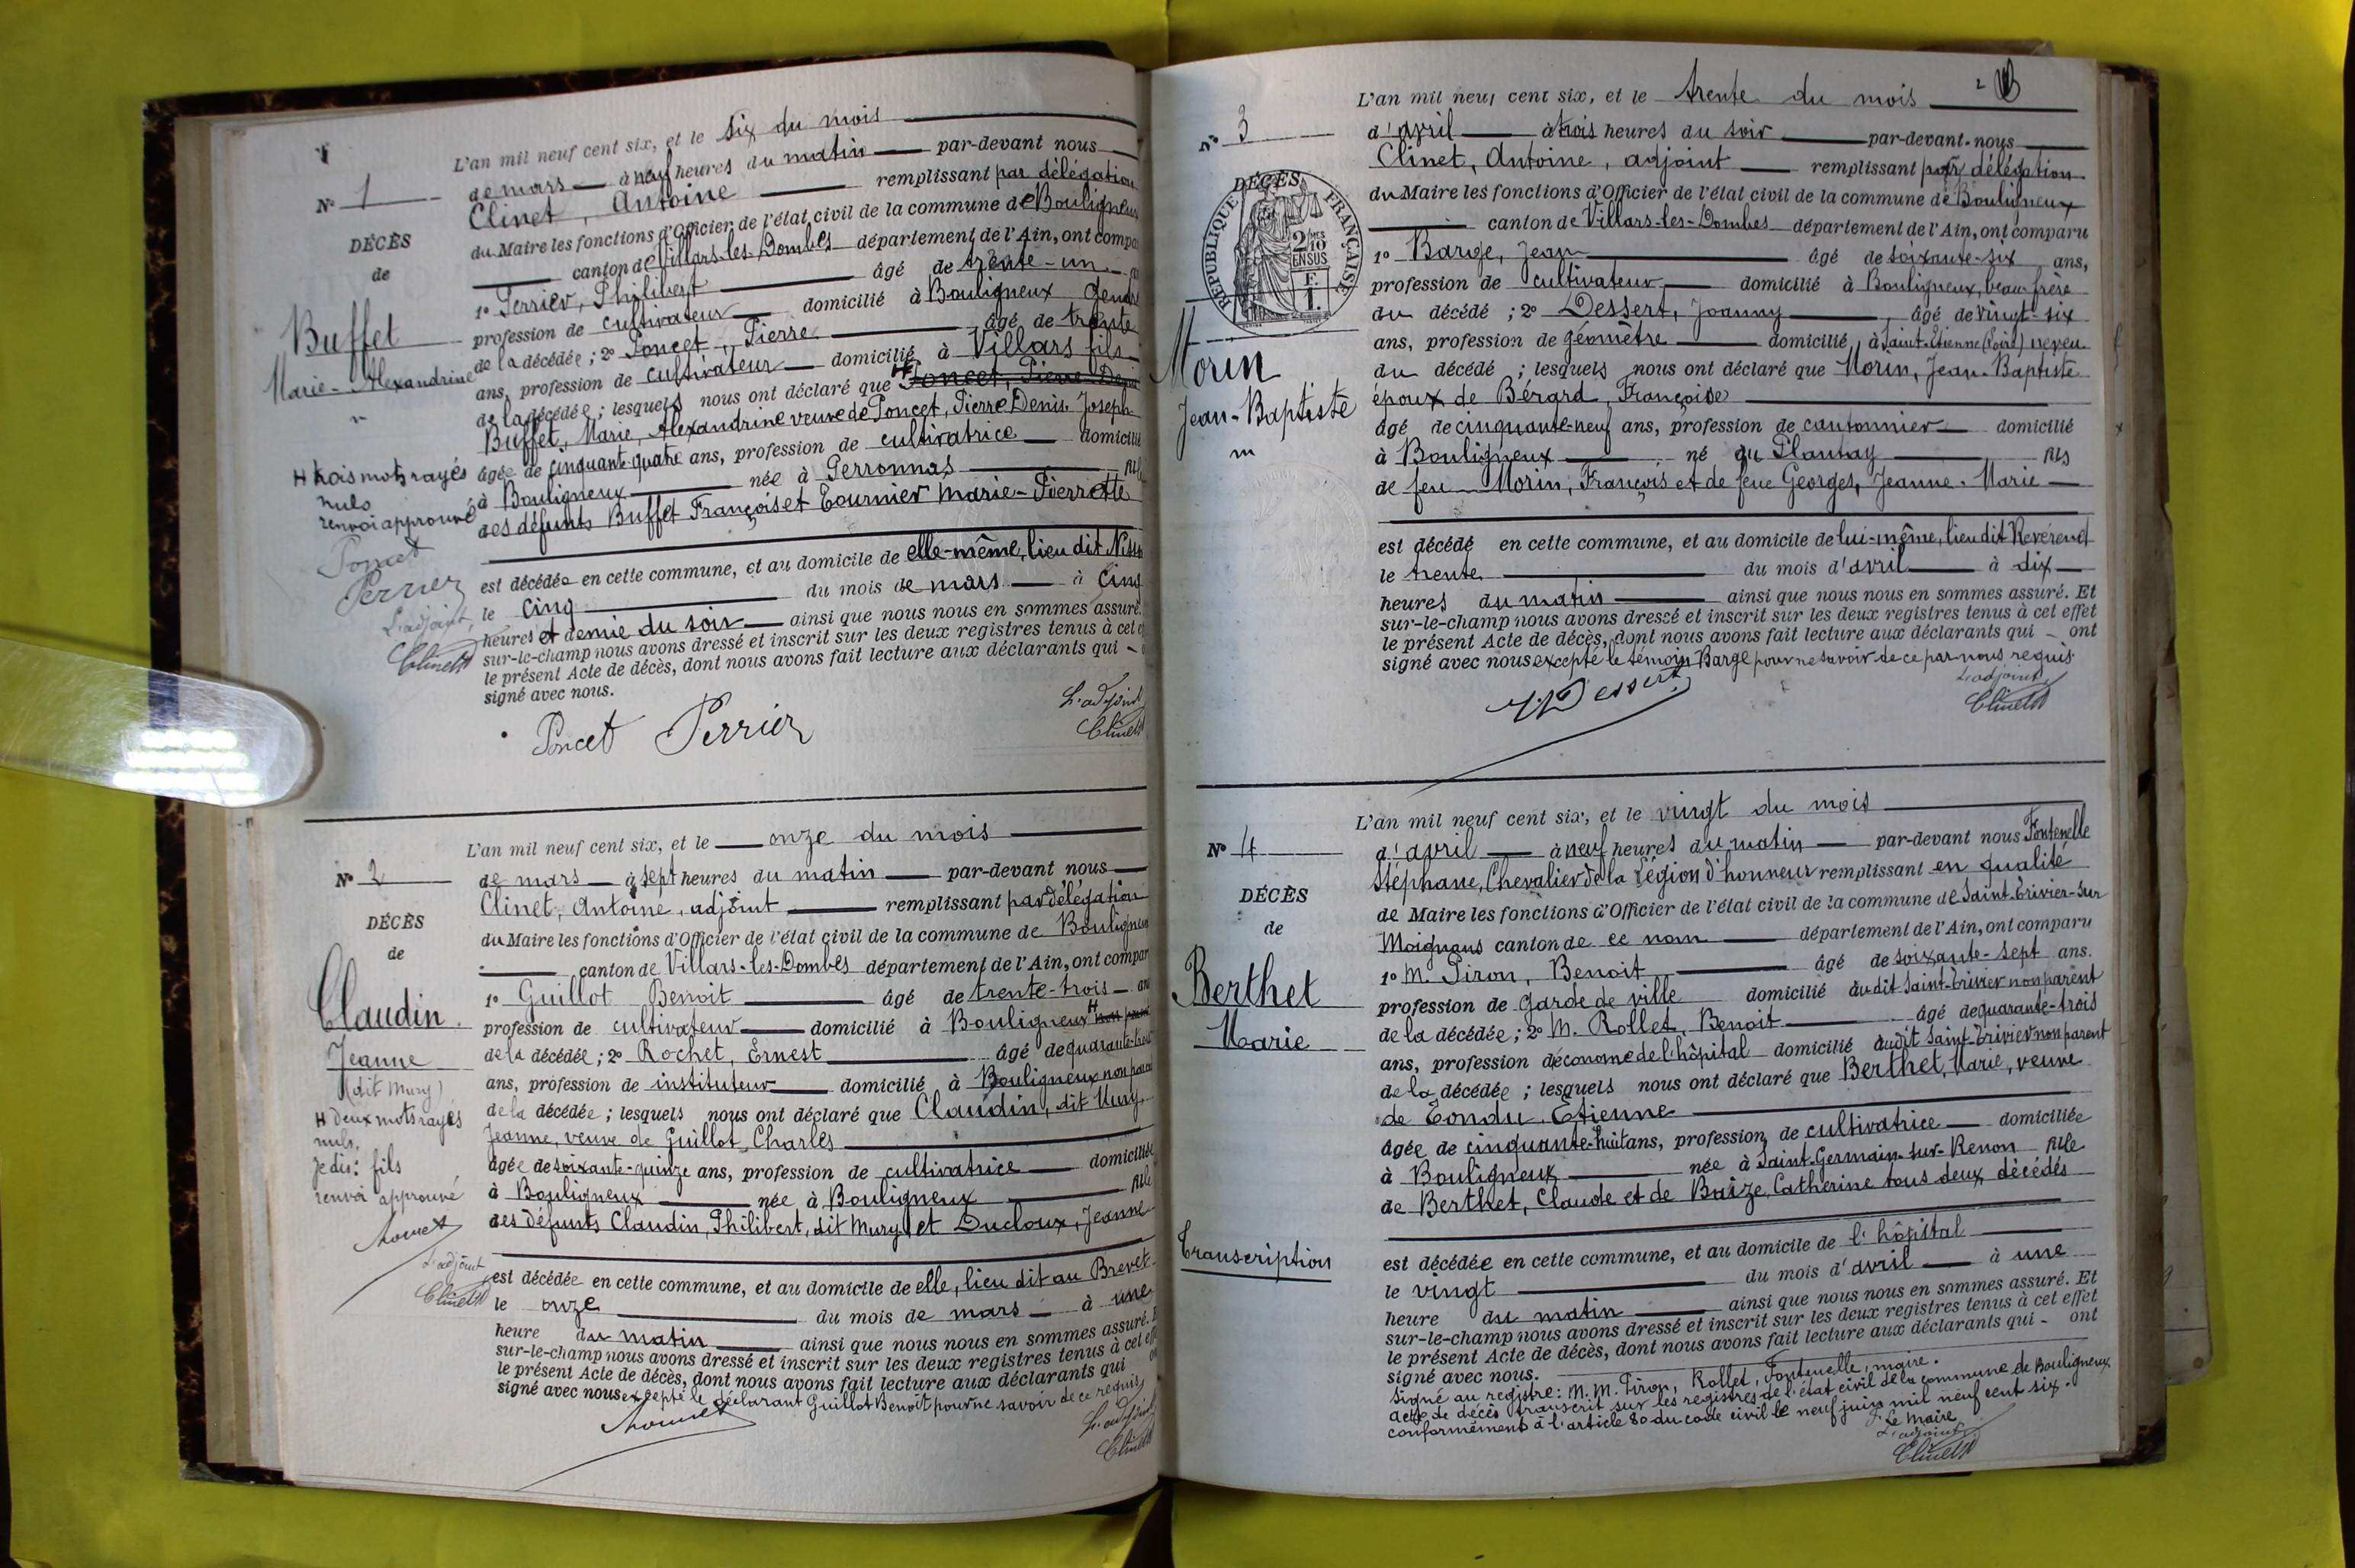 L'an mil neuf cent six, et le six du mois
Nº 1
de mars à neuf heures du matin par-devant nous
Clinet, Antoine remplissant par délégation
DÉCÈS
du Maire les fonctions d'Officier de l'état civil de la commune de Bouligneux
de
canton de Villars-les-Dombes département de l'Ain, ont compa
1º Perrier, Philibert âgé de trente-un
Buffet
profession de cultivateur domicilié à Bouligneux gendre
Marie-Alexandrine
de la décédée ; 2º Poncet, Pierre âgé de trente
ans, profession de cultivateur domicilié à Villars fils
de la décédée ; lesquels nous ont déclaré que Poncet, Pierre Denis
Buffet, Marie, Alexandrine veuve de Poncet, Pierre Denis Joseph
âgée de cinquante-quatre ans, profession de cultivatrice domiciliée
à Bouligneux née à Perronnas fille
des défunts Buffet François et Tournier Marie-Pierrette
H trois mots rayés
nuls
renvoi approuvé
Poncet
Perrier
L'adjoint,
Clinet
est décédée en cette commune, et au domicile de elle-même, lieu dit
le cinq du mois de mars à cinq
heures et demie du soir ainsi que nous nous en sommes assuré.
sur-le-champ nous avons dressé et inscrit sur les deux registres tenus à cet
le présent Acte de décès, dont nous avons fait lecture aux déclarants qui
signé avec nous.
Poncet Perrier
L'adjoint
Clinet
L'an mil neuf cent six, et le onze du mois
Nº 2
de mars à sept heures du matin par-devant nous
Clinet, Antoine, adjoint remplissant par délégation
DÉCÈS
du Maire les fonctions d'Officier de l'état civil de la commune de Bouligneux
de
canton de Villars-les-Dombes département de l'Ain, ont compar
1º Guillot Benoit âgé de trente-trois ans
Claudin
profession de cultivateur domicilié à Bouligneux H non parent
Jeanne
de la décédée ; 2º Rochet, Ernest âgé de quarante-trois
(dit Mury)
ans, profession de instituteur domicilié à Bouligneux non parent
de la décédée ; lesquels nous ont déclaré que Claudin, dit Mury,
Jeanne, veuve de Guillot, Charles
âgée de soixante-quinze ans, profession de cultivatrice domiciliée
à Bouligneux née à Bouligneux fille
des défunts Claudin, Philibert, dit Mury et Ducloux, Jeanne
H deux mots rayés
nuls.
je dis : fils
renvoi approuvé
L'adjoint
Clinet
est décédée en cette commune, et au domicile de elle, lieu dit au Brevet
le onze du mois de mars à une
heure du matin ainsi que nous nous en sommes assuré. E
sur-le-champ nous avons dressé et inscrit sur les deux registres tenus à cet eff
le présent Acte de décès, dont nous avons fait lecture aux déclarants qui on
signé avec nous excepté le déclarant Guillot Benoit pour ne savoir de ce requis
L'adjoint
Clinet
2
L'an mil neuf cent six, et le trente du mois
Nº 3
d'avril à trois heures du soir par-devant nous
Clinet, Antoine, adjoint remplissant par délégation
du Maire les fonctions d'Officier de l'état civil de la commune de Bouligneux
canton de Villars-les-Dombes département de l'Ain, ont comparu
DÉCÈS
RÉPUBLIQUE FRANÇAISE
2/10
EN SUS
1º Barge, Jean âgé de soixante-six ans,
profession de cultivateur domicilié à Bouligneux, beau-frère
du décédé ; 2º Dessert, Joanny âgé de vingt-six
ans, profession de géomètre domicilié à Saint-Etienne (Loire) neveu
Morin
Jean-Baptiste
du décédé ; lesquels nous ont déclaré que Morin, Jean-Baptiste
époux de Bérard, Françoise
âgé de cinquante-neuf ans, profession de cantonnier domicilié
à Bouligneux né au Plantay fils
de feu Morin, François et de feue Georges, Jeanne-Marie
est décédé en cette commune, et au domicile de lui-même, lieu dit Reverend
le trente du mois d'avril à dix
heures du matin ainsi que nous nous en sommes assuré. Et
sur-le-champ nous avons dressé et inscrit sur les deux registres tenus à cet effet
le présent Acte de décès, dont nous avons fait lecture aux déclarants qui ont
signé avec nous excepté le témoin Barge pour ne savoir de ce par nous requis
Dessert
L'adjoint,
Clinet
L'an mil neuf cent six, et le vingt du mois
Nº 4
d'avril à neuf heures du matin par-devant nous Fontenelle
Stéphane, Chevalier de la Légion d'honneur remplissant en qualité
DÉCÈS
de Maire les fonctions d'Officier de l'état civil de la commune de Saint-Trivier-sur
de
Moignans canton de ce nom département de l'Ain, ont comparu
1º M. Piron, Benoit âgé de soixante-sept ans.
Berthet
profession de garde de ville domicilié audit Saint-Trivier non parent
Marie
de la décédée ; 2º M. Rollet, Benoit âgé de quarante-trois
ans, profession d'économe de l'hôpital domicilié audit Saint-Trivier non parent
de la décédée ; lesquels nous ont déclaré que Berthet, Marie, veuve
de Tondu, Etienne
âgée de cinquante-huit ans, profession de cultivatrice domiciliée
à Bouligneux née à Saint-Germain-sur-Renon fille
de Berthet, Claude et de Buize, Catherine tous deux décédés
Transcription
est décédée en cette commune, et au domicile de l'hôpital
le vingt du mois d'avril à une
heure du matin ainsi que nous nous en sommes assuré. Et
sur-le-champ nous avons dressé et inscrit sur les deux registres tenus à cet effet
le présent Acte de décès, dont nous avons fait lecture aux déclarants qui ont
signé avec nous.
Signé au registre : M.M. Piron, Rollet, Fontenelle, maire.
Acte de décès transcrit sur les registres de l'état civil de la commune de Bouligneux,
conformément à l'article 80 du code civil le neuf juin mil neuf cent six.
Le Maire
L'adjoint
Clinet